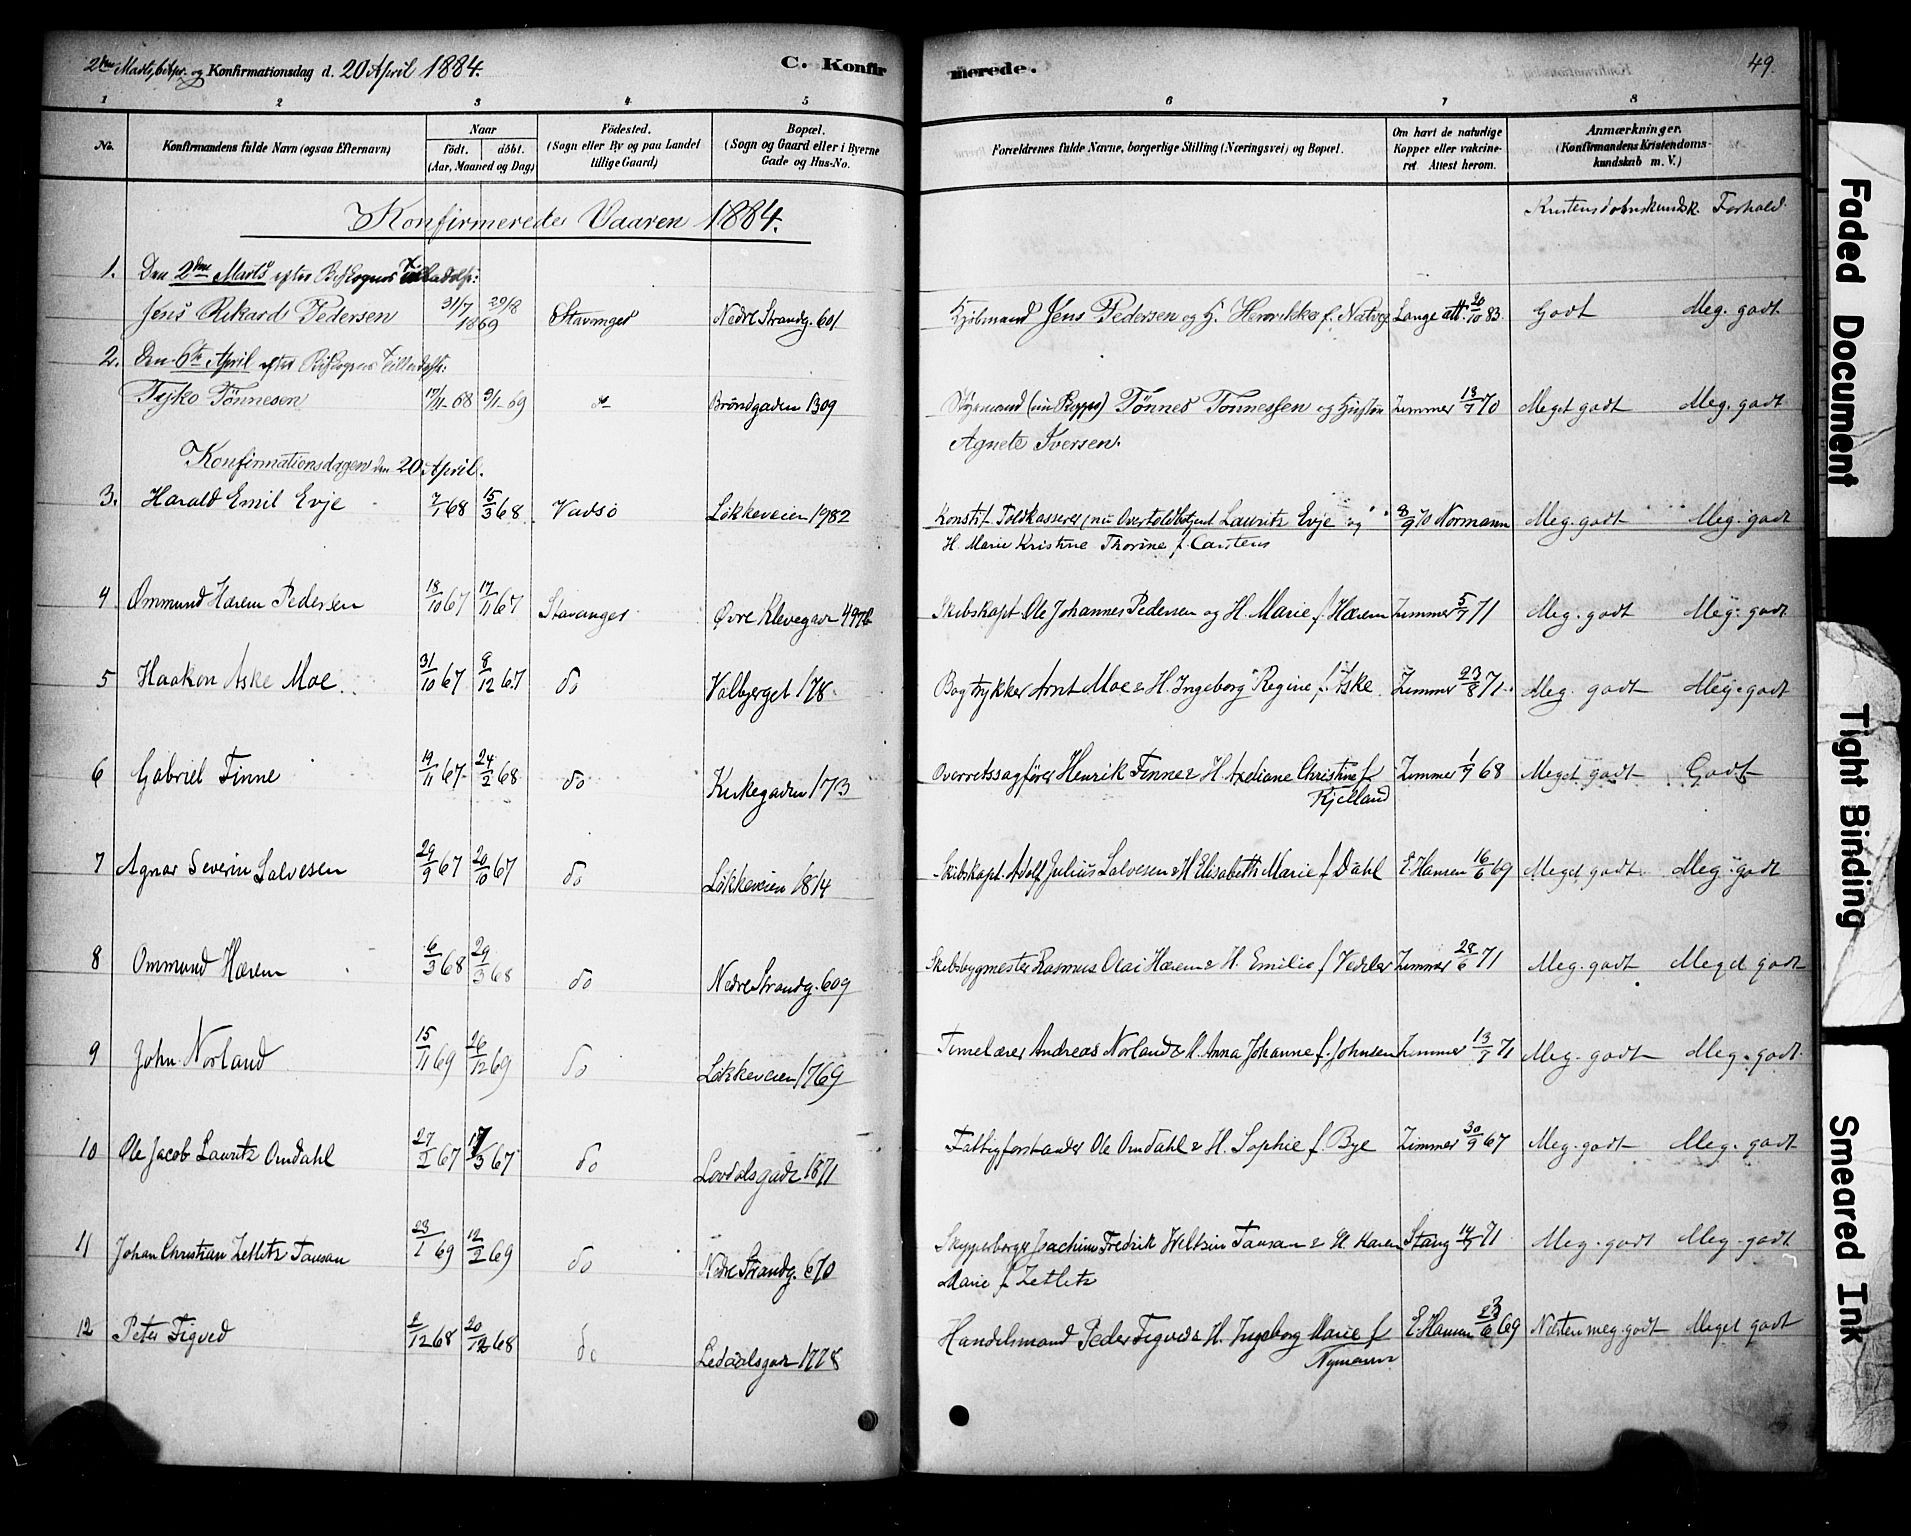 2den Marts, 6 Apr. og Konfirmationsdag d. 20 April 1884. C. Konfirmerede. 49.
1 2 3 4 5 6 7 8
No. Konfirmandens fulde Navn (ogsaa Efternavn) Naar født. døbt. (Aar, Maaned og Dag) Fødested. (Sogn eller By og paa Landet tillige Gaard) Bopæl. (Sogn og Gaard eller i Byerne Gade og Hus-No. Forældrenes fulde Navne, borgerlige Stilling (Næringsvei) og Bopæl. Om havt de naturlige Kopper eller vakcineret Attest herom. Anmærkninger. (Konfirmandens Kristendomskundskab m. V.)
Konfirmerede Vaaren 1884. Kristendomskundsk. Forhold
1. Den 2den Marts efter Biskopens Tilladelse:
Jens Rikard Pedersen 31/7 29/8 1869 Stavanger Nedre Strandg. 601 Kjøbmand Jens Pedersen og H. Henrikke f. Natvig Lange att. 20/10 83. Godt Meg. godt
2. Den 6te April efter Biskopens Tilladelse:
Tyko Tönnesen 17/11-68 9/1-69 do Bröndgaden 1309 Tönnes Tönnessen og Hustru Zimmer 13/7 70 Meget godt Meg. godt
Agnete Iversen.
Konfirmationsdagen den 20. April.
3. Harald Emil Evje 7/1 68 15/3 68 Vadsö Løkkeveien 1982 Konst. Toldkasserer, nu Overtoldbetjent Lauritz Evje og 8/9 70 Normann Meg. godt Meg. godt
H. Marie Kristine Thorine f. Carstens
4 Ommund Hærem Pedersen 18/10 67 17/11 67 Stavanger Øvre Klevegade 497b Skibskapt. Ole Johannes Pedersen og H. Marie f. Hærem Zimmer 5/7 71 Meg. godt Meg. godt
5 Haakon Aske Moe. 31/10 67 8/12 67 do Valbjerget 178. Bogtrykker Arnt Moe & H. Ingeborg Regine f. Aske Zimmer 23/8 71. Meg. godt Meg. godt
6 Gabriel Finne 19/11 67. 24/2 68 do Kirkegaden 173 Overretssagfører Henrik Finne & H. Axeliane Christine f. Zimmer 1/9 68 Meget godt Godt
Kjelland
7 Agnar Severin Salvesen 29/9 67 20/10 67 do Løkkeveien 1814 Skibskapt. Adolf Julius Salvesen & H. Elisabeth Marie f. Dahl E. Hansen 16/6 69 Meget godt Meg. godt
8 Ommund Hærem 6/3 68 29/3 68 do Nedre Strandg. 609 Skibsbygmester Rasmus Olai Hærem & H. Emilie f. Vedeler Zimmer 28/6 71 Meg. godt Meget godt
9 John Norland 15/11 69 26/12 69 do Løkkeveien 1769 Timelærer Andreas Norland & H. Anna Johanne f. Johnsen Zimmer 13/7 71 Meg. godt Meg. godt
10 Ole Jacob Lauritz Omdahl 27/1 67 17/3 67 do Lovdalsgade 1871 Fattigforstander Ole Omdahl & H. Sophie f. Bye Zimmer 30/9 67 Meg. godt Meg. godt
11 Johan Christian Zetlitz Tausan 23/1 69 12/2 69 do Nedre Strandg. 670 Skypperborger Joachim Fredrik Tausan & H. Karen Stang 14/7 71 Meg. godt Meg. godt
Marie f. Zetlitz
12 Peter Tigved 2/12 68 20/12 68 do Ledaalsgade 1778 Handelsmand Peder Tigved & H. Ingeborg Marie f. E. Hansen 23/6 69 Næsten meg. godt Meget godt
Nymann
Faded Document
Tight Binding
Smeared Ink